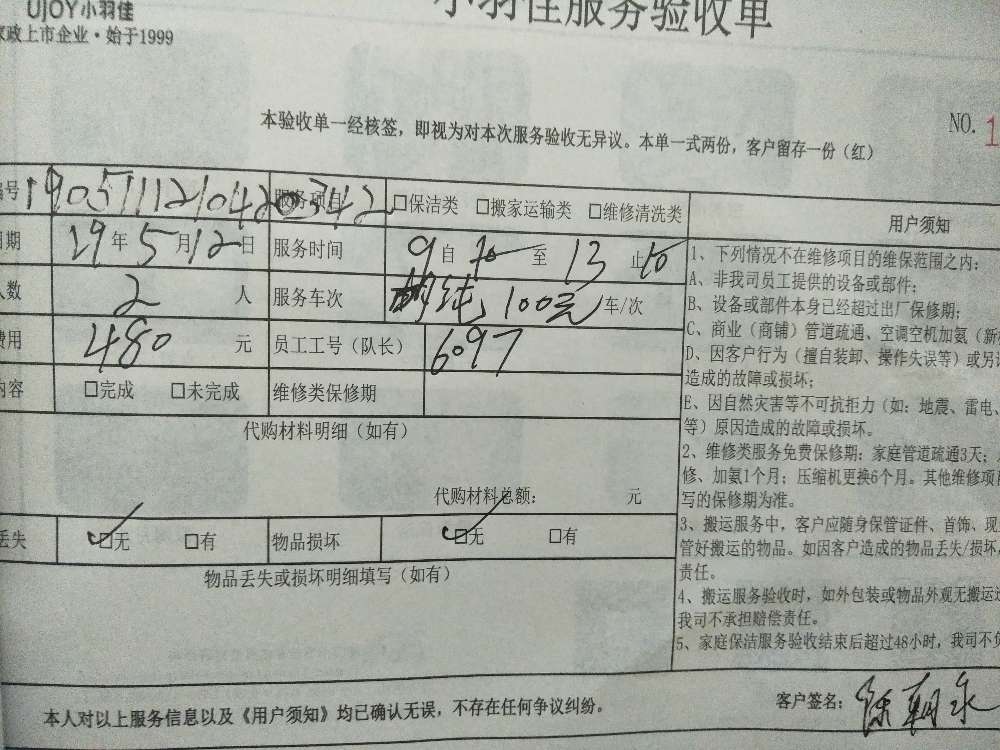 UJOY小羽佳
家政上市企业·始于1999
小羽佳服务验收单
NO. 1
本验收单一经核签，即视为对本次服务验收无异议。本单一式两份，客户留存一份（红）
编号 190511121042 服务项目 0342 □保洁类 □搬家运输类 □维修清洗类
日期 19年5月12日 服务时间 9自 至 13止10
人数 2人 服务车次 100元 车/次
费用 480元 员工工号（队长） 6097
内容 □完成 □未完成 维修类保修期
代购材料明细（如有）
代购材料总额： 元
丢失 ☑无 □有 物品损坏 ☑无 □有
物品丢失或损坏明细填写（如有）
用户须知
1、下列情况不在维修项目的维保范围之内：
A、非我司员工提供的设备或部件；
B、设备或部件本身已经超过出厂保修期；
C、商业（商铺）管道疏通、空调空机加氨（新
D、因客户行为（擅自装卸、操作失误等）或另
造成的故障或损坏；
E、因自然灾害等不可抗拒力（如：地震、雷电、
等）原因造成的故障或损坏。
2、维修类服务免费保修期：家庭管道疏通3天；
修、加氨1个月；压缩机更换6个月。其他维修项
写的保修期为准。
3、搬运服务中，客户应随身保管证件、首饰、现
管好搬运的物品。如因客户造成的物品丢失/损坏，
责任。
4、搬运服务验收时，如外包装或物品外观无搬运
我司不承担赔偿责任。
5、家庭保洁服务验收结束后超过48小时，我司不负
本人对以上服务信息以及《用户须知》均已确认无误，不存在任何争议纠纷。
客户签名：陈朝永